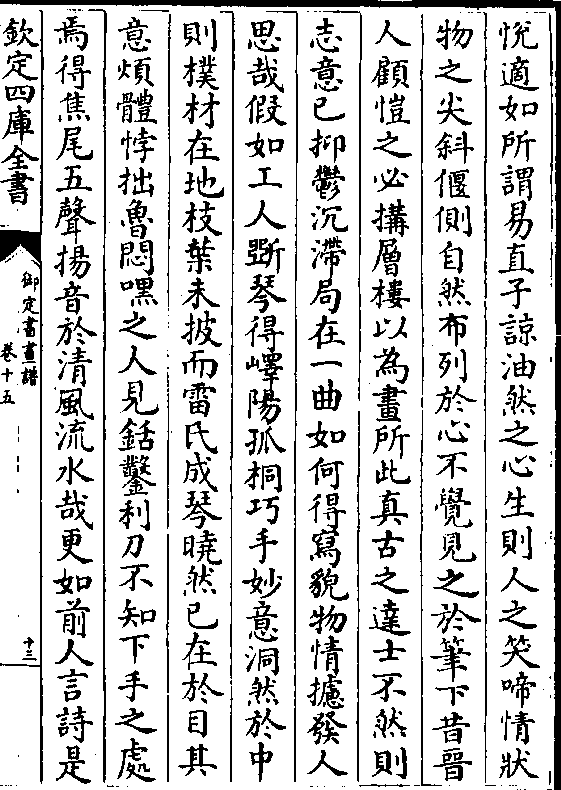 悅適如所謂易直子諒油然之心生則人之笑啼情狀
物之尖斜偃側自然布列於心不覺見之於筆下昔晉
人顧愷之必搆層樓以為畫所此真古之達士不然則
志意已抑鬱沉滯局在一曲如何得寫貌物情攄發人
思哉假如工人斲琴得嶧陽孤桐巧手妙意洞然於中
則樸材在地枝葉未披而雷氏成琴曉然已在於目其
意煩體悖拙魯悶嘿之人見銛鑿利刀不知下手之處
焉得焦尾五聲揚音於清風流水哉更如前人言詩是
欽定四庫全書
御定書畫譜
卷十五
十三